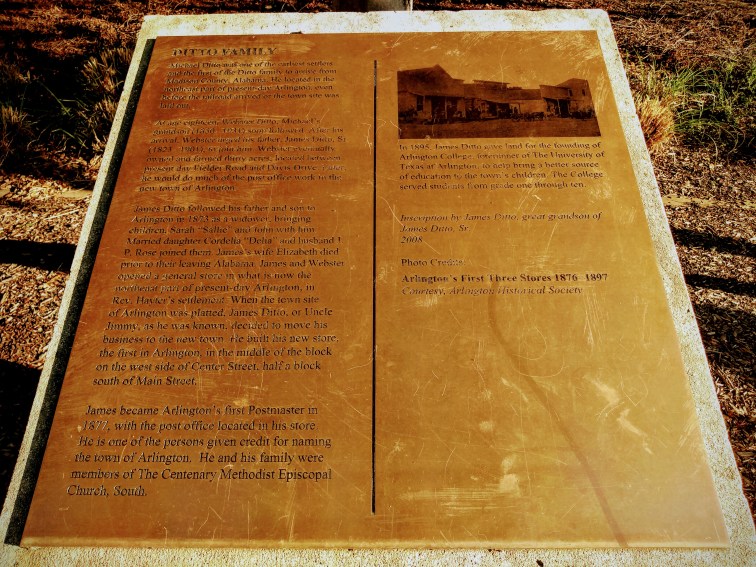 DITTO FAMILY
Michael Ditto was one of the earliest settlers
and the first of the Ditto family to arrive from
Madison County, Alabama. He located in the
northeast part of present-day Arlington, even
before the railroad arrived or the town site was
laid out.
At age eighteen, Webster Ditto, Michael's
grandson soon followed. After his
arrival, Webster urged his father, James Ditto, Sr.
to join him. Webster eventually
owned and farmed thirty acres, located between
present day Fielder Road and Davis Drive. Later
he would do much of the post office work in the
new town of Arlington.
James Ditto followed his father and son to
Arlington in 1873 as a widower, bringing
children, Sarah "Sallie" and John with him.
Married daughter Cordelia "Delia" and husband J.
P. Rose joined them. James's wife Elizabeth died
prior to their leaving Alabama. James and Webster
opened a general store in what is now the
northeast part of present-day Arlington, in
Rev. Hayter's settlement. When the town site
of Arlington was platted, James Ditto, or Uncle
Jimmy, as he was known, decided to move his
business to the new town. He built his new store,
the first in Arlington, in the middle of the block
on the west side of Center Street, half a block
south of Main Street.
James became Arlington's first Postmaster in
1877, with the post office located in his store.
He is one of the persons given credit for naming
the town of Arlington. He and his family were
members of The Centenary Methodist Episcopal
Church, South.
In 1895, James Ditto gave land for the founding of
Arlington College, forerunner of The University of
Texas at Arlington, to help bring a better source
of education to the town's children. The College
served students from grade one through ten.
Inscription by James Ditto, great grandson of
James Ditto, Sr.
2008
Photo Credits:
Arlington's First Three Stores 1876-1897
Courtesy, Arlington Historical Society